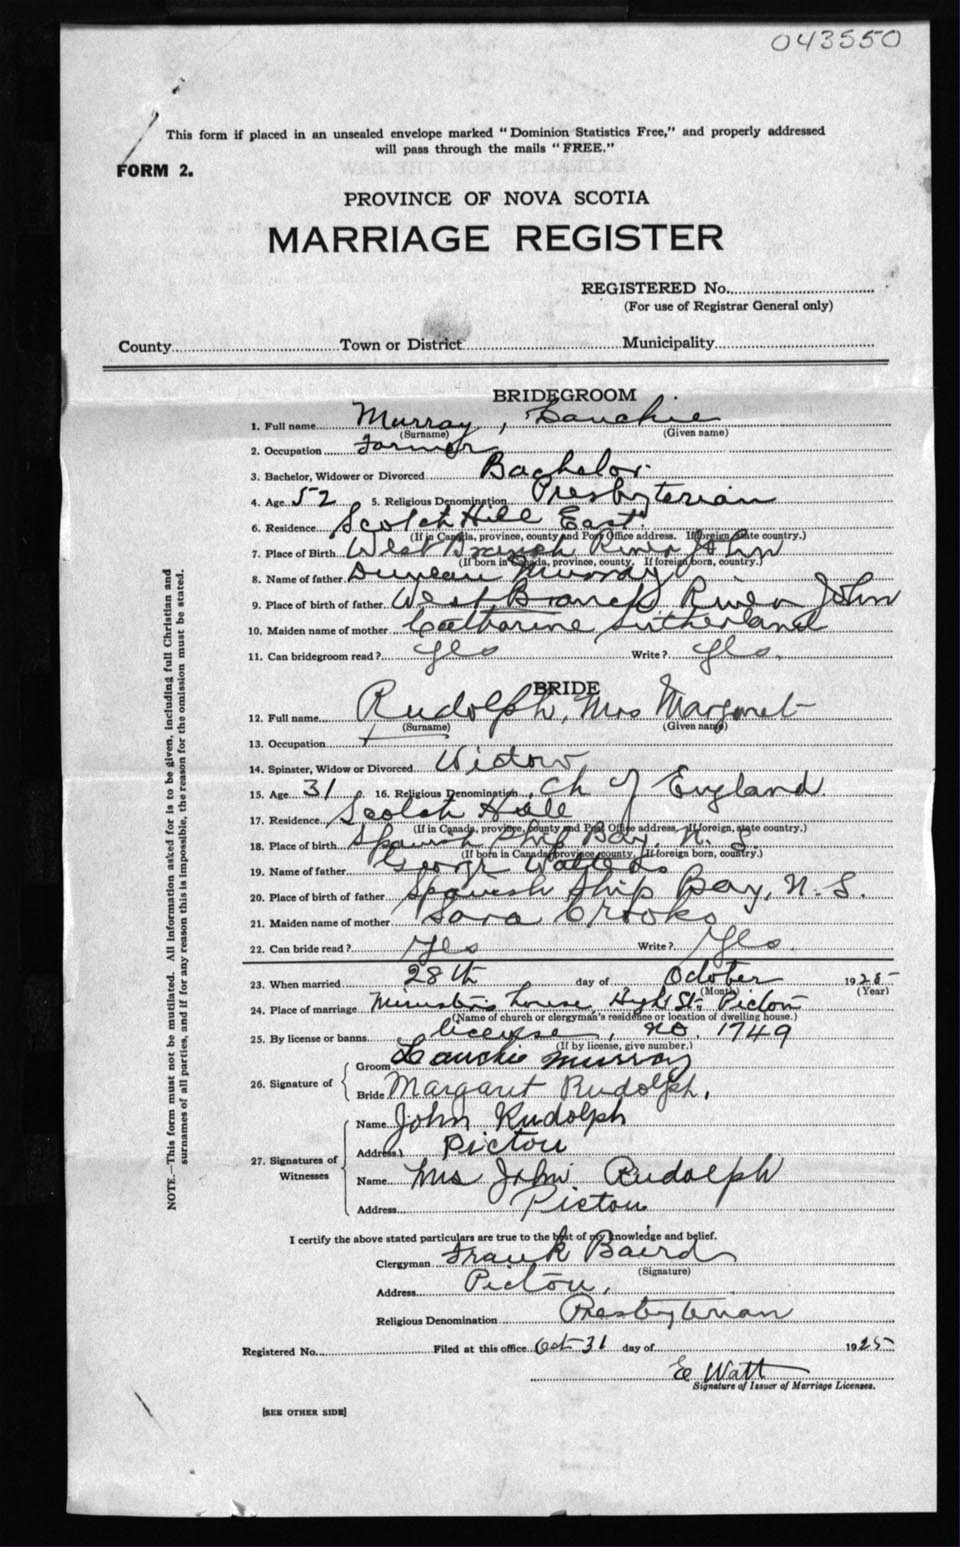 043550
This form if placed in an unsealed envelope marked "Dominion Statistics Free," and properly addressed
will pass through the mails "FREE."
FORM 2.
PROVINCE OF NOVA SCOTIA
MARRIAGE REGISTER
REGISTERED No.
(For use of Registrar General only)
County Town or District Municipality
BRIDEGROOM
1. Full name Murray, Lauchie
(Surname) (Given name)
2. Occupation Farmer
3. Bachelor, Widower or Divorced Bachelor.
4. Age 52 5. Religious Denomination Presbyterian
6. Residence Scotch Hill East
(If in Canada, province, county and Post Office address. If foreign, state country.)
7. Place of Birth West Branch River John
(If born in Canada, province, county. If foreign born, country.)
8. Name of father Duncan Murray
9. Place of birth of father West Branch River John
10. Maiden name of mother Catharine Sutherland
11. Can bridegroom read? yes Write? yes.
BRIDE
12. Full name Rudolph, Mrs Margaret
(Surname) (Given name)
13. Occupation
14. Spinster, Widow or Divorced Widow
15. Age 31 16. Religious Denomination Ch of England
17. Residence Scotch Hill
(If in Canada, province, county and Post Office address. If foreign, state country.)
18. Place of birth Spanish Ship Bay, N. S.
(If born in Canada province, county. If foreign born, country.)
19. Name of father George
20. Place of birth of father Spanish Ship Bay, N. S.
21. Maiden name of mother Sara Crooks
22. Can bride read? Yes Write? Yes.
23. When married 28th day of October 1925
(Month) (Year)
24. Place of marriage Minister's house, High St. Pictou
(Name of church or clergyman's residence or location of dwelling house.)
25. By license or banns license, no. 1749
(If by license, give number.)
26. Signature of Groom Lauchie Murray
Bride Margaret Rudolph.
27. Signatures of Witnesses
Name John Rudolph
Address Pictou
Name Mrs John Rudolph
Address Pictou
I certify the above stated particulars are true to the best of my knowledge and belief.
Clergyman Frank Baird
(Signature)
Address Pictou.
Religious Denomination Presbyterian
Registered No. Filed at this office Oct 31 day of 1925
E Watt
Signature of Issuer of Marriage Licenses.
[SEE OTHER SIDE]
NOTE.—This form must not be mutilated. All information asked for is to be given, including full Christian and
surnames of all parties, and if for any reason this is impossible, the reason for the omission must be stated.